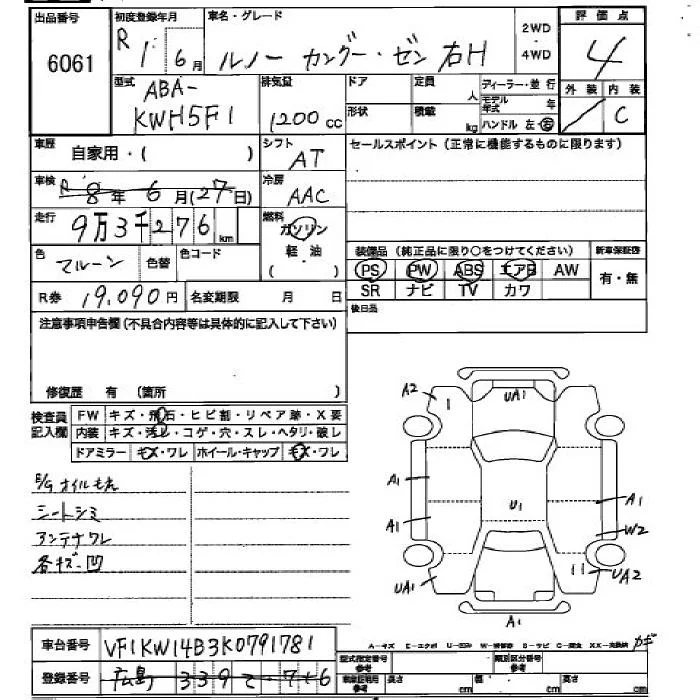 出品番号 初度登録年月 車名・グレード 2WD 評価点
6061 R 1年 6月 ルノー カングー・ゼン 右H ・ 4WD 4
型式 ABA-KWH5F1 排気量 1200cc ドア 定員 人 ディーラー・並行 外装 内装
形状 積載 kg モデル年式 年 ハンドル 左・右 C
車歴 自家用・( ) シフト AT セールスポイント (正常に機能するものに限ります)
車検 R 8年 6月 (27日) 冷房 AAC
走行 9万3千276km 燃料 ガソリン
軽・油
( ・ )
色 マルーン 色替 色コード 装備品 (純正品に限り○をつけてください) 新車保証書
PS PW ABS エアB AW 有・無
R券 19,090円 名変期限 月 日 SR ナビ TV カワ
注意事項申告欄 (不具合内容等は具体的に記入して下さい) 後日品
修復歴 有 (箇所 )
検査員記入欄 FW キズ・飛石・ヒビ割・リペア跡・X要
内装 キズ・汚レ・コゲ・穴・スレ・ヘタリ・破レ
ドアミラー キズ・ワレ ホイール・キャップ キズ・ワレ
E/Gオイルもれ
シートシミ
アンテナワレ
各キズ・凹
A2 1 UA1
A1 A1
U1
A1 W2
UA1 11 UA2
A1
車台番号 VF1KW14B3K0791781
A-キズ E-エクボ U-凹み W-補修跡 B-サビ C-腐食 XX-交換済 カギ
登録番号 広島 339 て 7-6
型式指定番号 類別区分番号
車検証明用参考 長さ cm 幅 cm 高さ cm